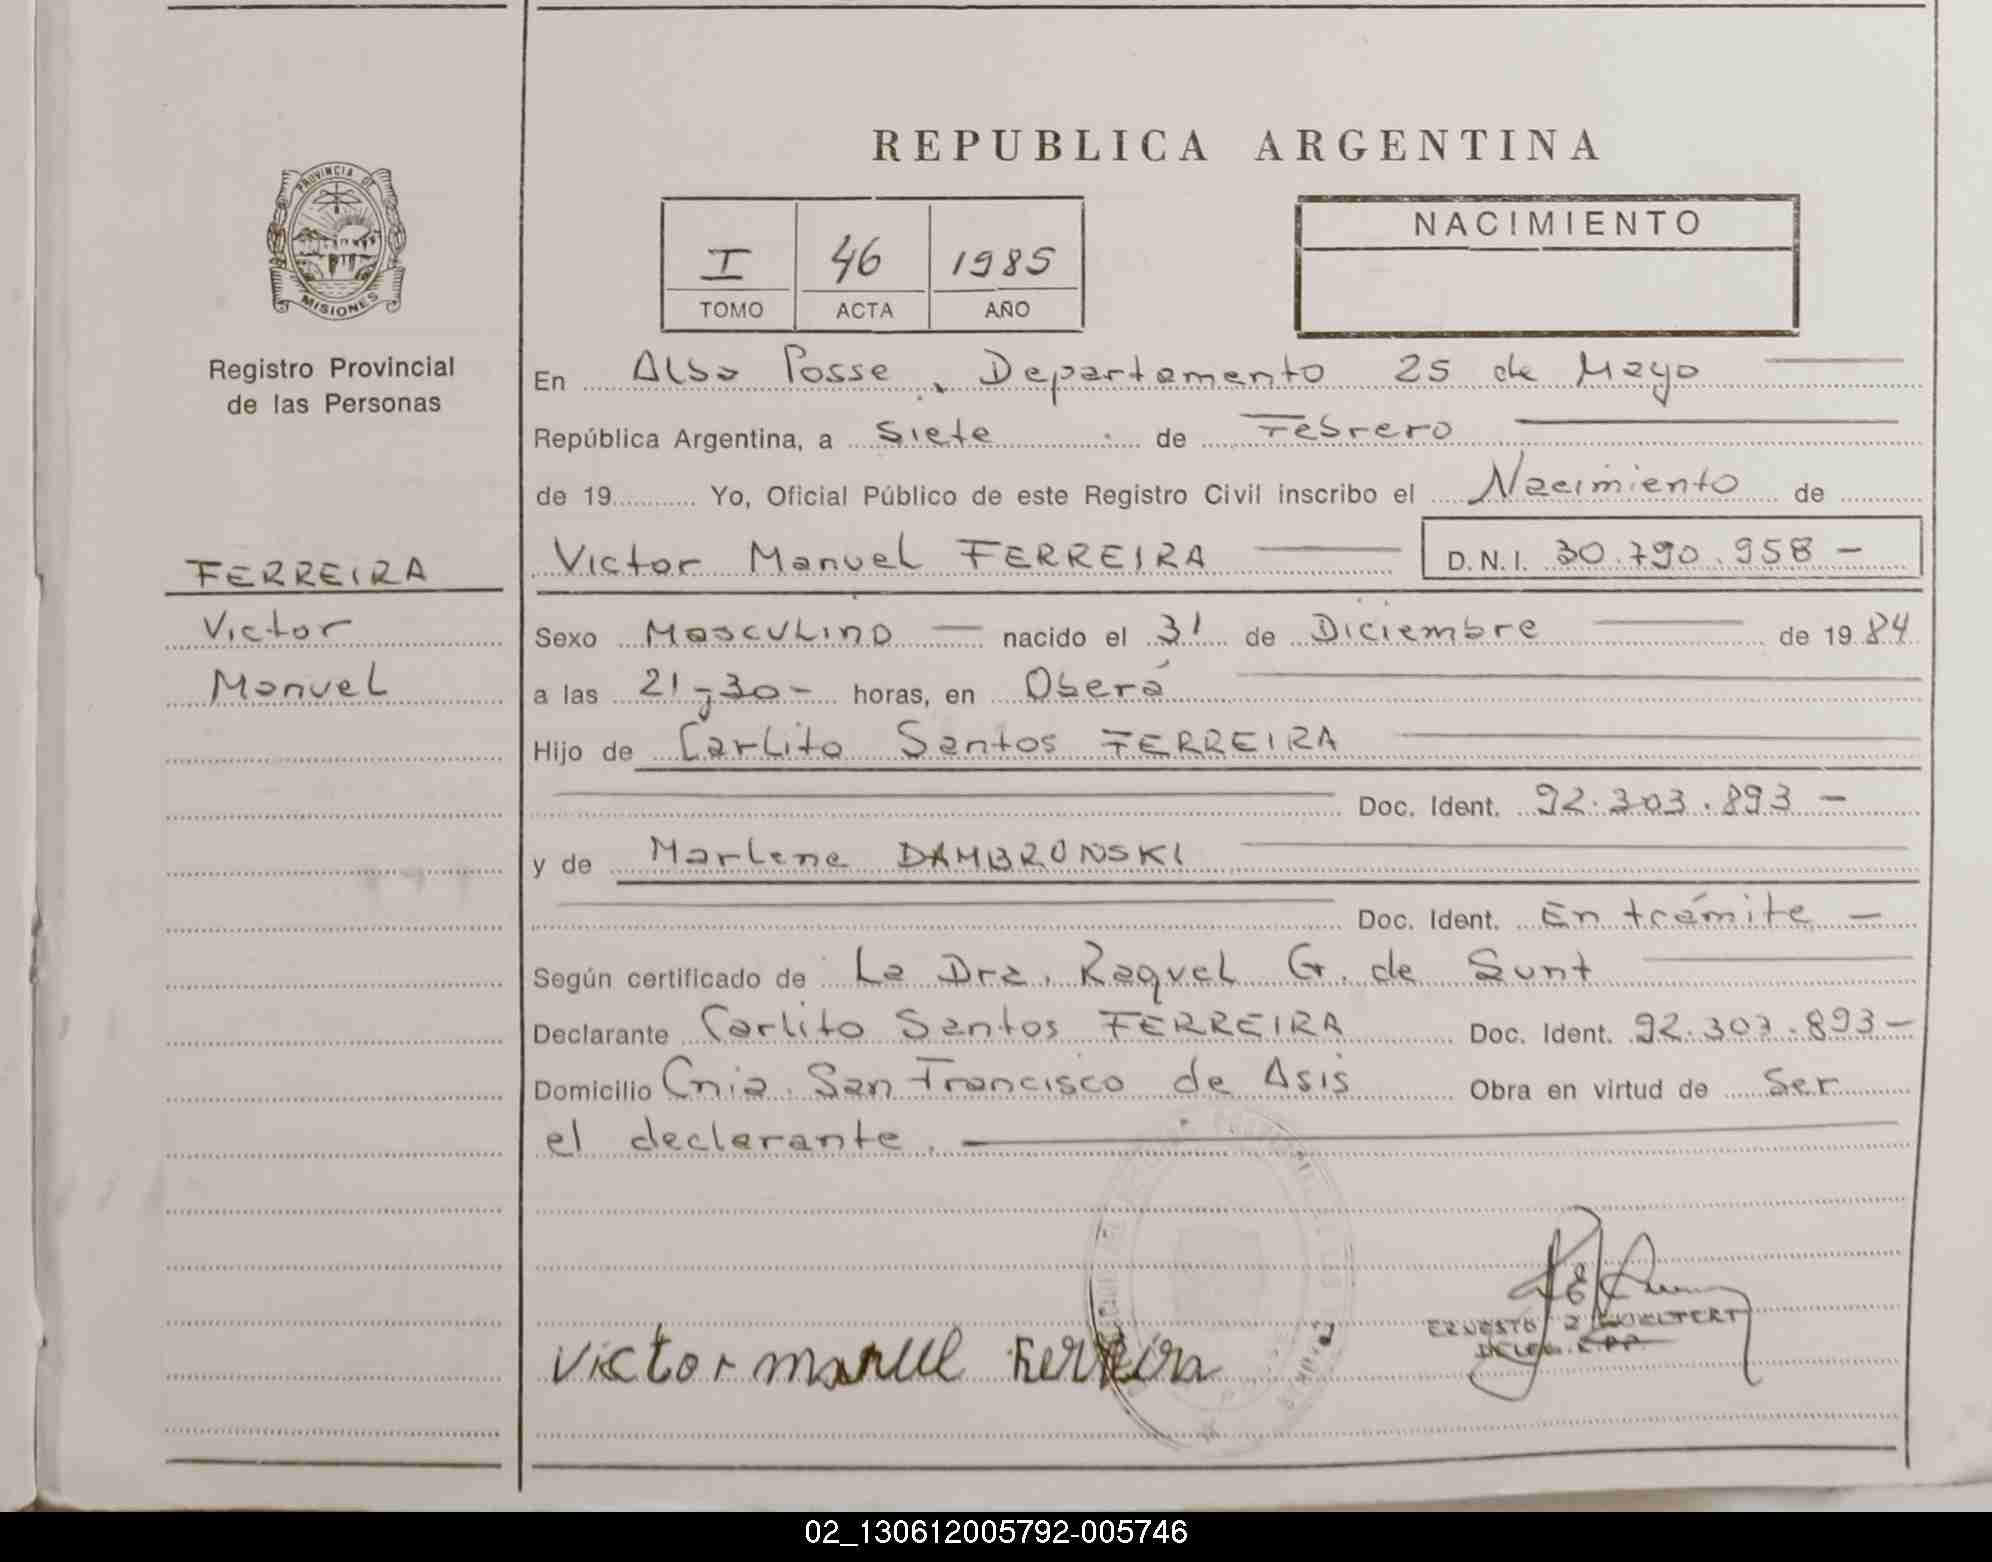 REPUBLICA ARGENTINA
PROVINCIA DE
MISIONES
Registro Provincial
de las Personas
I 46 1985
TOMO ACTA AÑO
NACIMIENTO
En Alba Posse, Departamento 25 de Mayo
República Argentina, a Siete de Febrero
de 19 Yo, Oficial Público de este Registro Civil inscribo el Nacimiento de
FERREIRA
Victor
Manuel
Victor Manuel FERREIRA D.N.I. 30.790.958 -
Sexo Masculino nacido el 31 de Diciembre de 1984
a las 21,30- horas, en Oberá
Hijo de Carlito Santos FERREIRA
Doc. Ident. 92.303.893 -
y de Marlene DAMBRONSKI
Doc. Ident. En trámite -
Según certificado de La Dra. Raquel G. de Sunt
Declarante Carlito Santos FERREIRA Doc. Ident. 92.303.893-
Domicilio Cnia. San Francisco de Asis Obra en virtud de Ser
el declarante.
Victor manuel Ferreira
ERNESTO
02_130612005792-005746